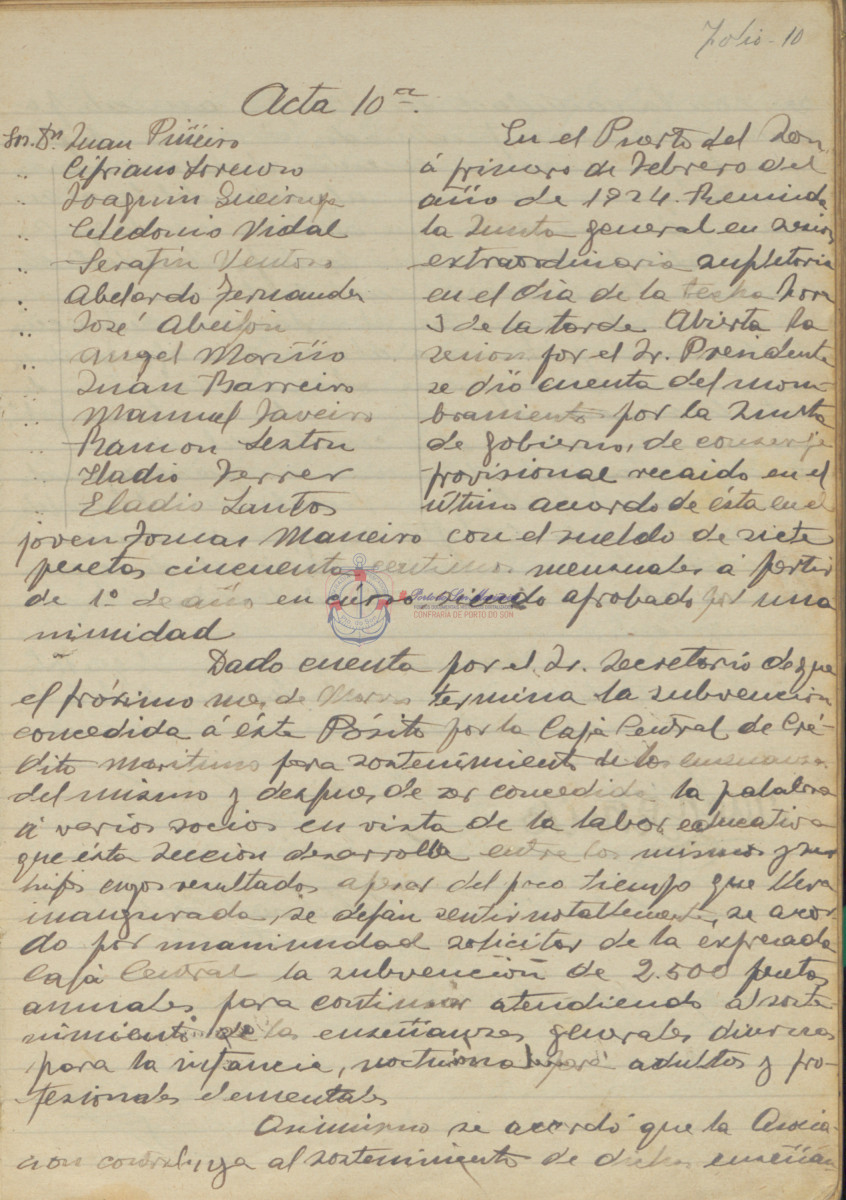 Folio - 10
Acta 10ª.
Srs. Dn. Juan Piñeiro
" Cipriano Lorenzo
" Joaquin Queiruga
" Celedonio Vidal
" Serafin Ventoso
" Abelardo Fernandez
" José Abeijón
" Angel Mariño
" Juan Barreiro
" Manuel Taveiro
" Ramon Sexton
" Eladio Ferrer
" Eladio Santos
En el Puerto del Son,
á primero de Febrero del
año de 1924. Reunida
la Junta general en sesion
extraordinaria supletoria
en el dia de la fecha hora
3 de la tarde Abierta la
sesion por el Sr. Presidente
se dió cuenta del nom-
bramiento por la Junta
de gobierno, de conserje
provisional recaido en el
último acordo de ésta en el
joven Tomas Maneiro con el sueldo de siete
pesetas cincuenta centimos mensuales á partir
de 1º de año en curso siendo aprobado por una
nimidad
Dado cuenta por el Sr. Secretario de que
el próximo mes de Marzo termina la subvencion
concedida á éste Pósito por la Caja Central de Cré-
dito maritimo para sostenimiento de las enseñanzas
del mismo y despues de ser concedida la palabra
á varios socios en vista de la labor educativa
que ésta Sección desarrolla entre los mismos y sus
hijos cuyos resultados apesar del poco tiempo que lleva
inaugurada, se dejan sentir notablemente, se acor
do por unanimidad solicitar de la expresada
Caja Central la subvención de 2.500 pesetas
anuales para continuar atendiendo al soste-
nimiento de las enseñanzas generales diurnas
para la infancia, nocturna para adultos y pro-
fesionales elementales
Asimismo se acordó que la Asocia-
cion contribuya al sostenimiento de dichas enseñan
CONFRARIA DE PORTO DO SON